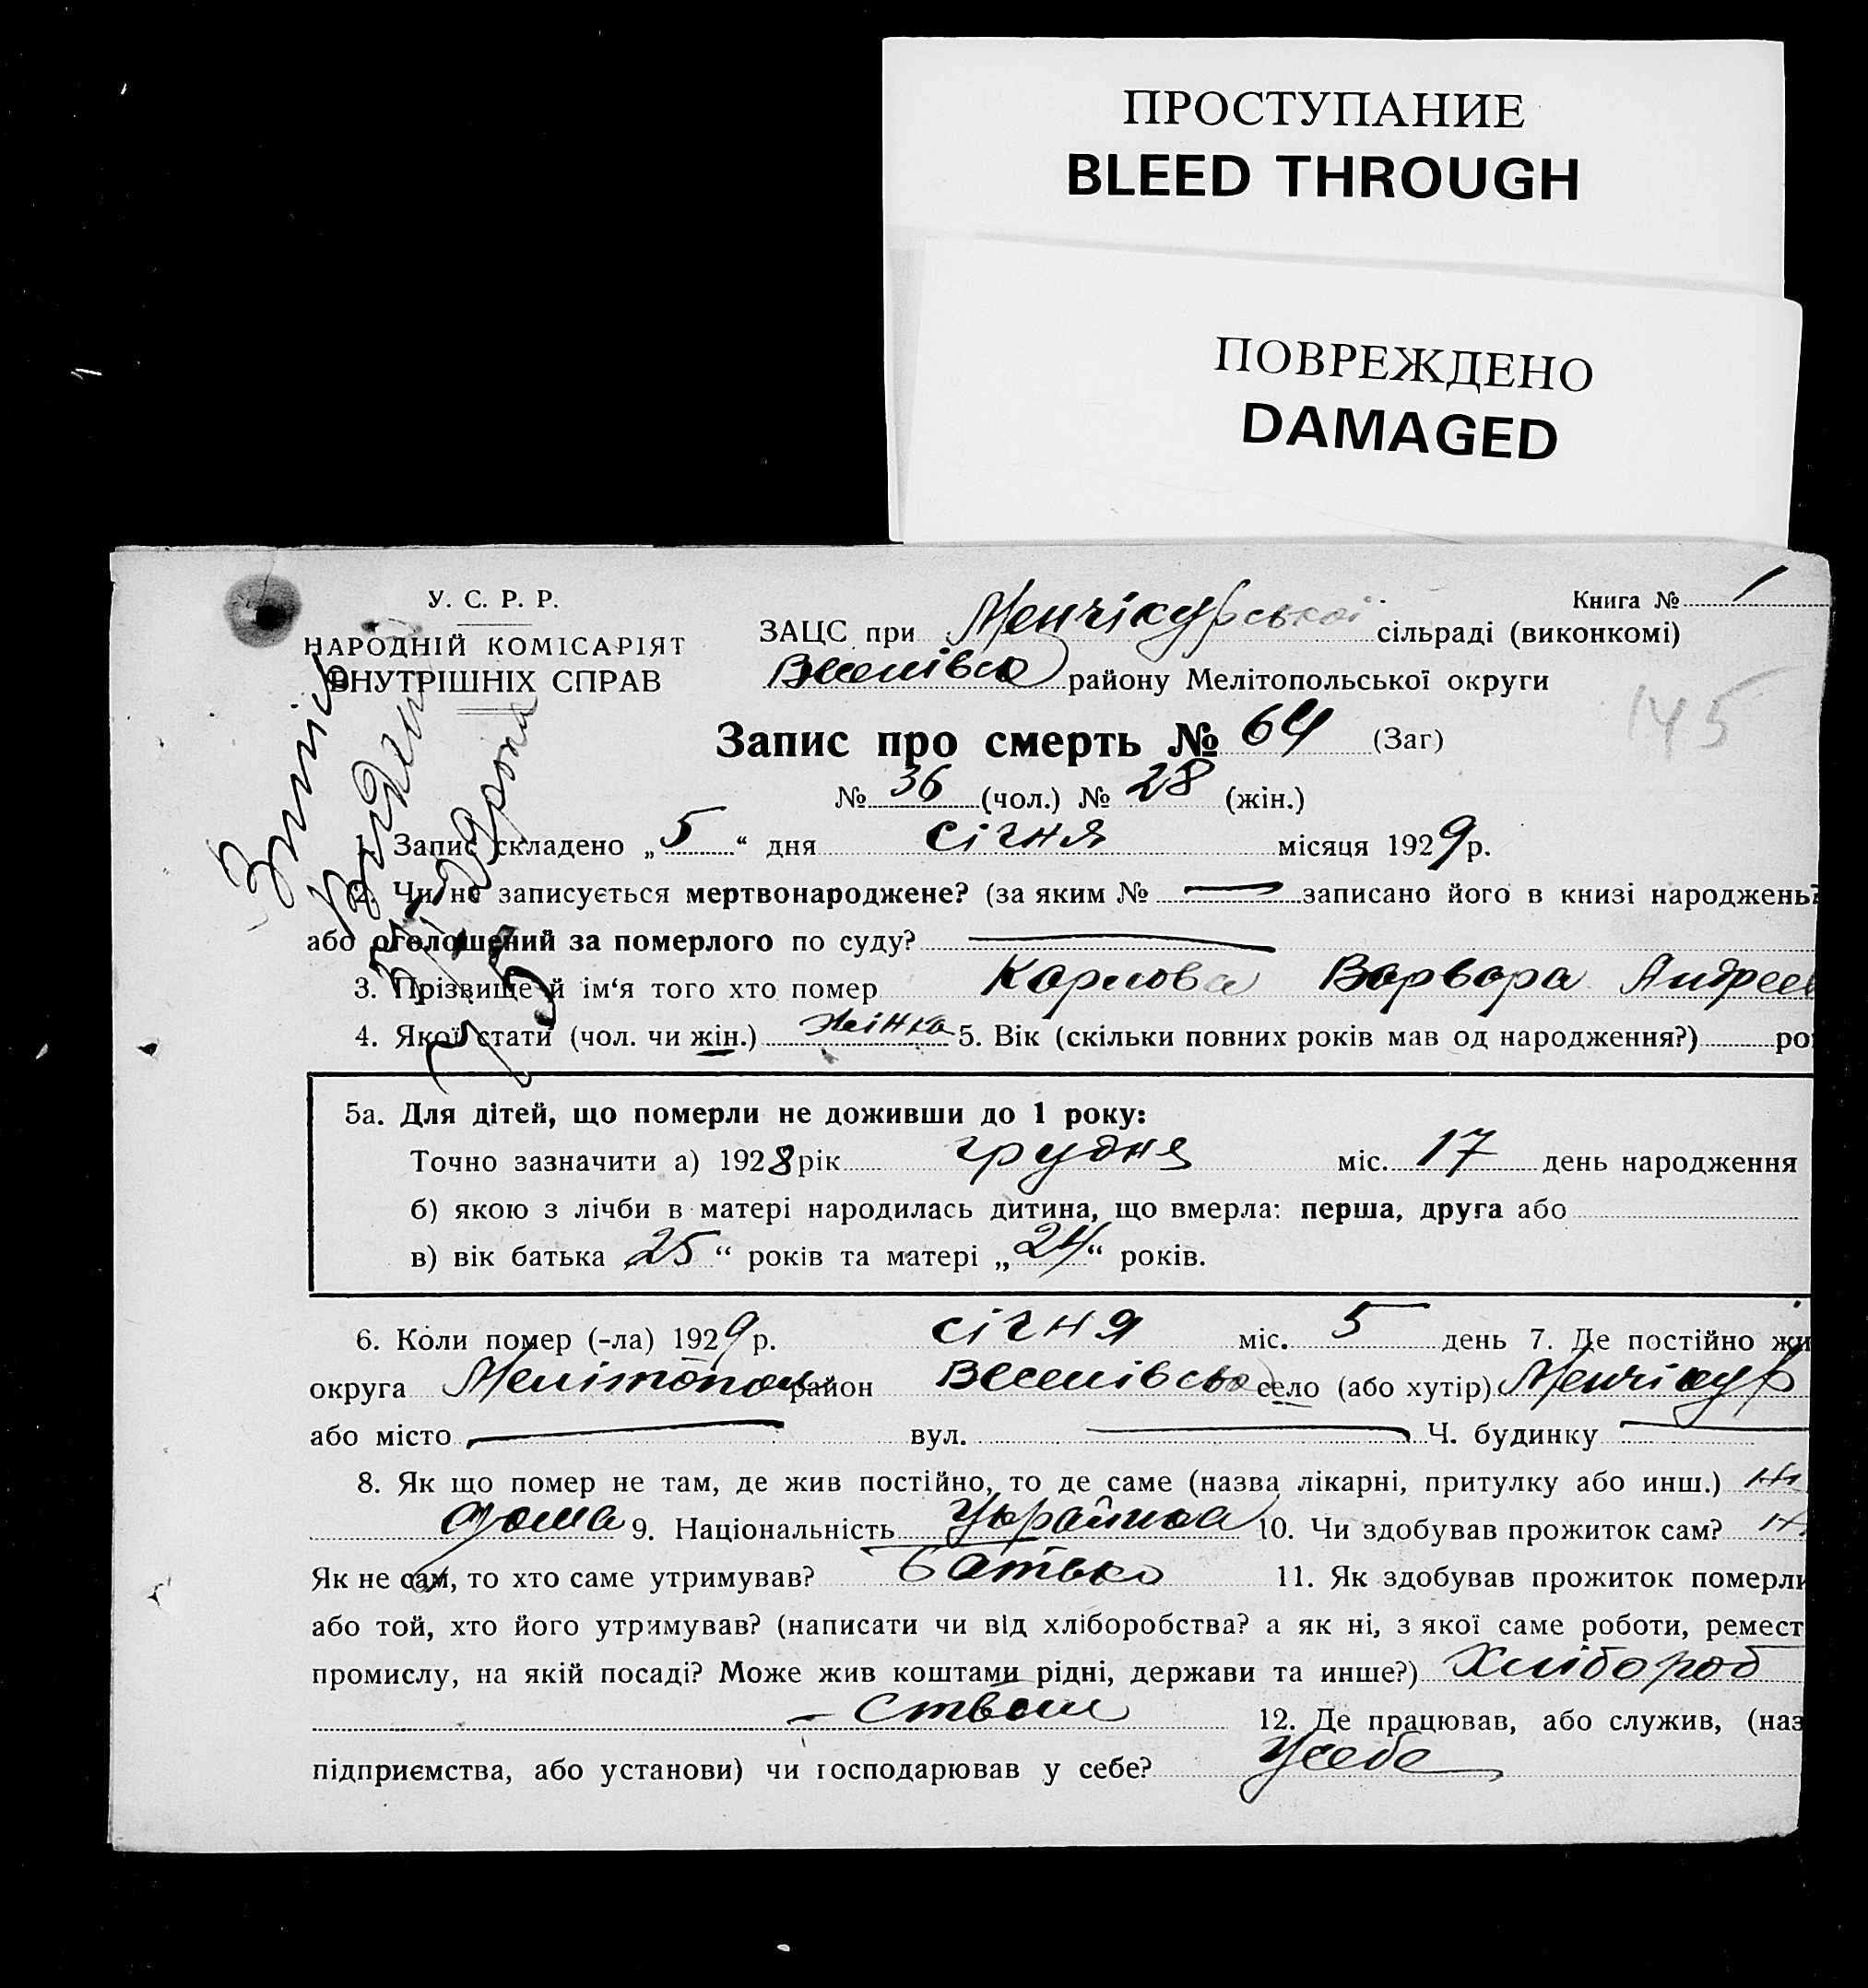 ПРОСТУПАНИЕ
BLEED THROUGH
ПОВРЕЖДЕНО
DAMAGED
У. С. Р. Р.
НАРОДНІЙ КОМІСАРІЯТ
ВНУТРІШНІХ СПРАВ
Книга № 1
ЗАЦС при Менчікурської сільраді (виконкомі)
Веселівськ району Мелітопольської округи
145
Запис про смерть № 64 (Заг)
№ 36 (чол.) № 28 (жін.)
1. Запис складено „5“ дня січня місяця 1929 р.
2. Чи не записується мертвонароджене? (за яким № — записано його в книзі народжень?
або оголошений за померлого по суду? —
3. Прізвище й ім‘я того хто помер Карлова Варвара Андреев
4. Якої стати (чол. чи жін.) жінка 5. Вік (скільки повних років мав од народження?) ро
5а. Для дітей, що померли не доживши до 1 року:
Точно зазначити а) 1928 рік грудня міс. 17 день народження
б) якою з лічби в матері народилась дитина, що вмерла: перша, друга або
в) вік батька 25 “ років та матері „24“ років.
6. Коли помер (-ла) 1929 р. січня міс. 5 день 7. Де постійно жи
округа Мелітополь район Веселівськ село (або хутір) Менчікур
або місто — вул. — Ч. будинку —
8. Як що помер не там, де жив постійно, то де саме (назва лікарні, притулку або инш.)
дома 9. Національність Українка 10. Чи здобував прожиток сам?
Як не сам, то хто саме утримував? батько 11. Як здобував прожиток померли
або той, хто його утримував? (написати чи від хліборобства? а як ні, з якої саме роботи, ремест
промислу, на якій посаді? Може жив коштами рідні, держави та инше?) Хлібороб
- ством 12. Де працював, або служив, (наз
підприємства, або установи) чи господарював у себе? У себе